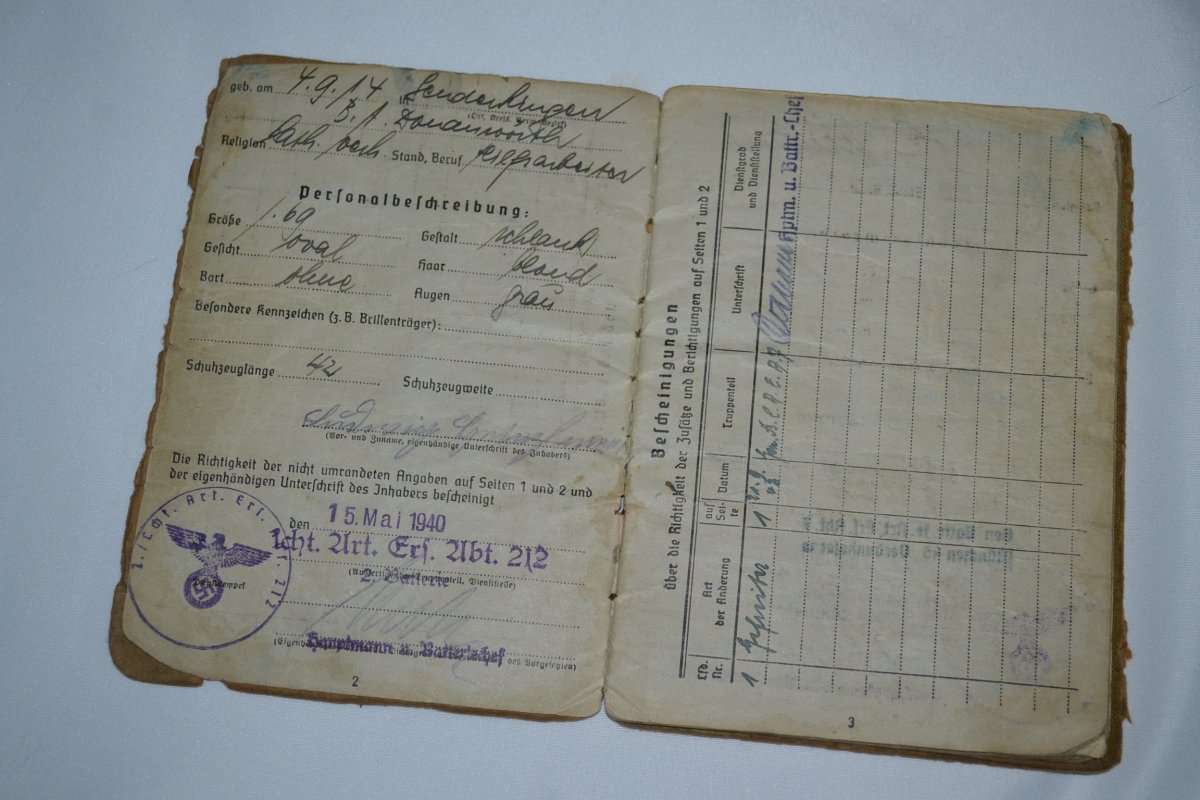 geb. am 4.9.14 in
(Ort, Kreis, Verw.-Bezirk)
B.A. Donauwörth
Religion kath. verh. Stand, Beruf Hilfsarbeiter
Personalbeschreibung:
Größe 1.69 Gestalt schlank
Gesicht oval Haar blond
Bart ohne Augen grau
Besondere Kennzeichen (z.B. Brillenträger):
Schuhzeuglänge 42 Schuhzeugweite
Ludwig
(Vor- und Zuname, eigenhändige Unterschrift des Inhabers)
Die Richtigkeit der nicht umrandeten Angaben auf Seiten 1 und 2 und
der eigenhändigen Unterschrift des Inhabers bescheinigt
den 15. Mai 1940
lcht. Art. Ers. Abt. 212
2. Batterie
Hauptmann u. Batteriechef
des Vorgesetzten)
2
Bescheinigungen
über die Richtigkeit der Zusätze und Berichtigungen auf Seiten 1 und 2
Lfd. Nr.
Art der Änderung
auf Seite
Datum
Truppenteil
Unterschrift
Dienstgrad und Dienststellung
1 Gefreiter 1
Hptm. u. Battr.-Chef
3